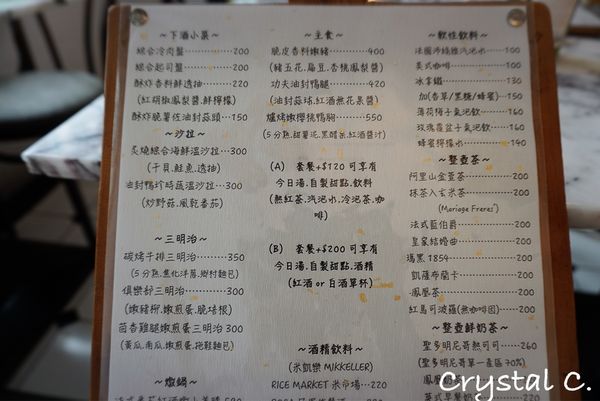 ～下酒小菜～
綜合冷肉盤 200
綜合起司盤 200
酥炸香料鮮透抽 220
(紅胡椒鳳梨醬.鮮檸檬)
酥炸脆薯佐油封蒜頭 150
～沙拉～
炙燒綜合海鮮溫沙拉 300
(干貝.鮭魚.透抽)
油封鴨胗時蔬溫沙拉 300
(炒野菇.風乾番茄)
～三明治～
碳烤牛排三明治 350
(5分熟.焦化洋蔥.鄉村麵包)
俱樂部三明治 300
(嫩豬所.嫩煎蛋.脆培根)
茴香雞腿嫩煎蛋三明治 300
(黃瓜.南瓜.嫩煎蛋.拖鞋麵包)
～燉鍋～
～主食～
脆皮香料嫩豬 400
(豬五花.扁豆.杏桃鳳梨醬)
功夫油封鴨腿 420
(油封蒜球.紅酒無花果醬)
爐烤嫩櫻桃鴨胸 550
(5分熟.甜薯泥.黑醋茶.紅酒醬汁)
(A) 套餐+$120可享有
今日湯.自製甜點.飲料
(熱紅茶.汽泡水.冷泡茶.咖
啡)
(B) 套餐+$200可享有
今日湯.自製甜點.酒精
(紅酒 or 白酒單杯)
～酒精飲料～
(米凱樂 MIKKELLER)
RICE MARKET 米市場 220
～軟性飲料～
法國沛綠雅汽泡水 100
美式咖啡 100
冰拿鐵 130
加(香草/黑糖/蜂蜜) 150
薄荷梅子氣泡飲 160
玫瑰覆盆子氣泡飲 160
蜂蜜檸檬水 140
～整壺茶～
阿里山金萱茶 200
抹茶入玄米茶 200
(Mariage Freres)
法式藍伯爵 200
皇家結婚曲 200
瑪黑 1854 200
凱薩布蘭卡 200
鳳凰茶 200
紅鳥可波羅(無咖啡因) 200
～整壺鮮奶茶～
聖多明尼哥熱可可 260
(聖多明尼哥單一產區70%)
鳳凰奶茶
英式早餐奶茶
Crystal C.